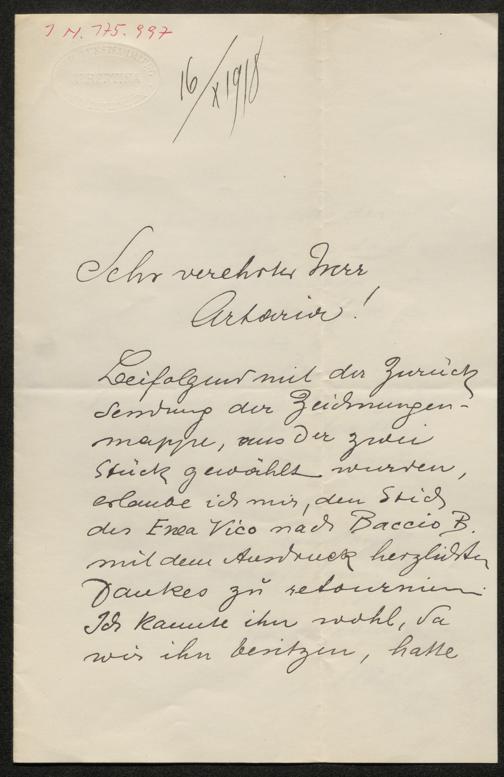 I N. 175.997
16/X 1918
Sehr verehrter Herr
Artaria!
Beifolgend mit der Zurück
sendung der Zeichnungen-
mappe, aus der zwei
Stück gewählt wurden,
erlaube ich mir, den Stich
des Enea Vico nach Baccio B.
mit dem Ausdruck herzlichsten
Dankes zu retournieren.
Ich kannte ihn wohl, da
wir ihn besitzen, hatte